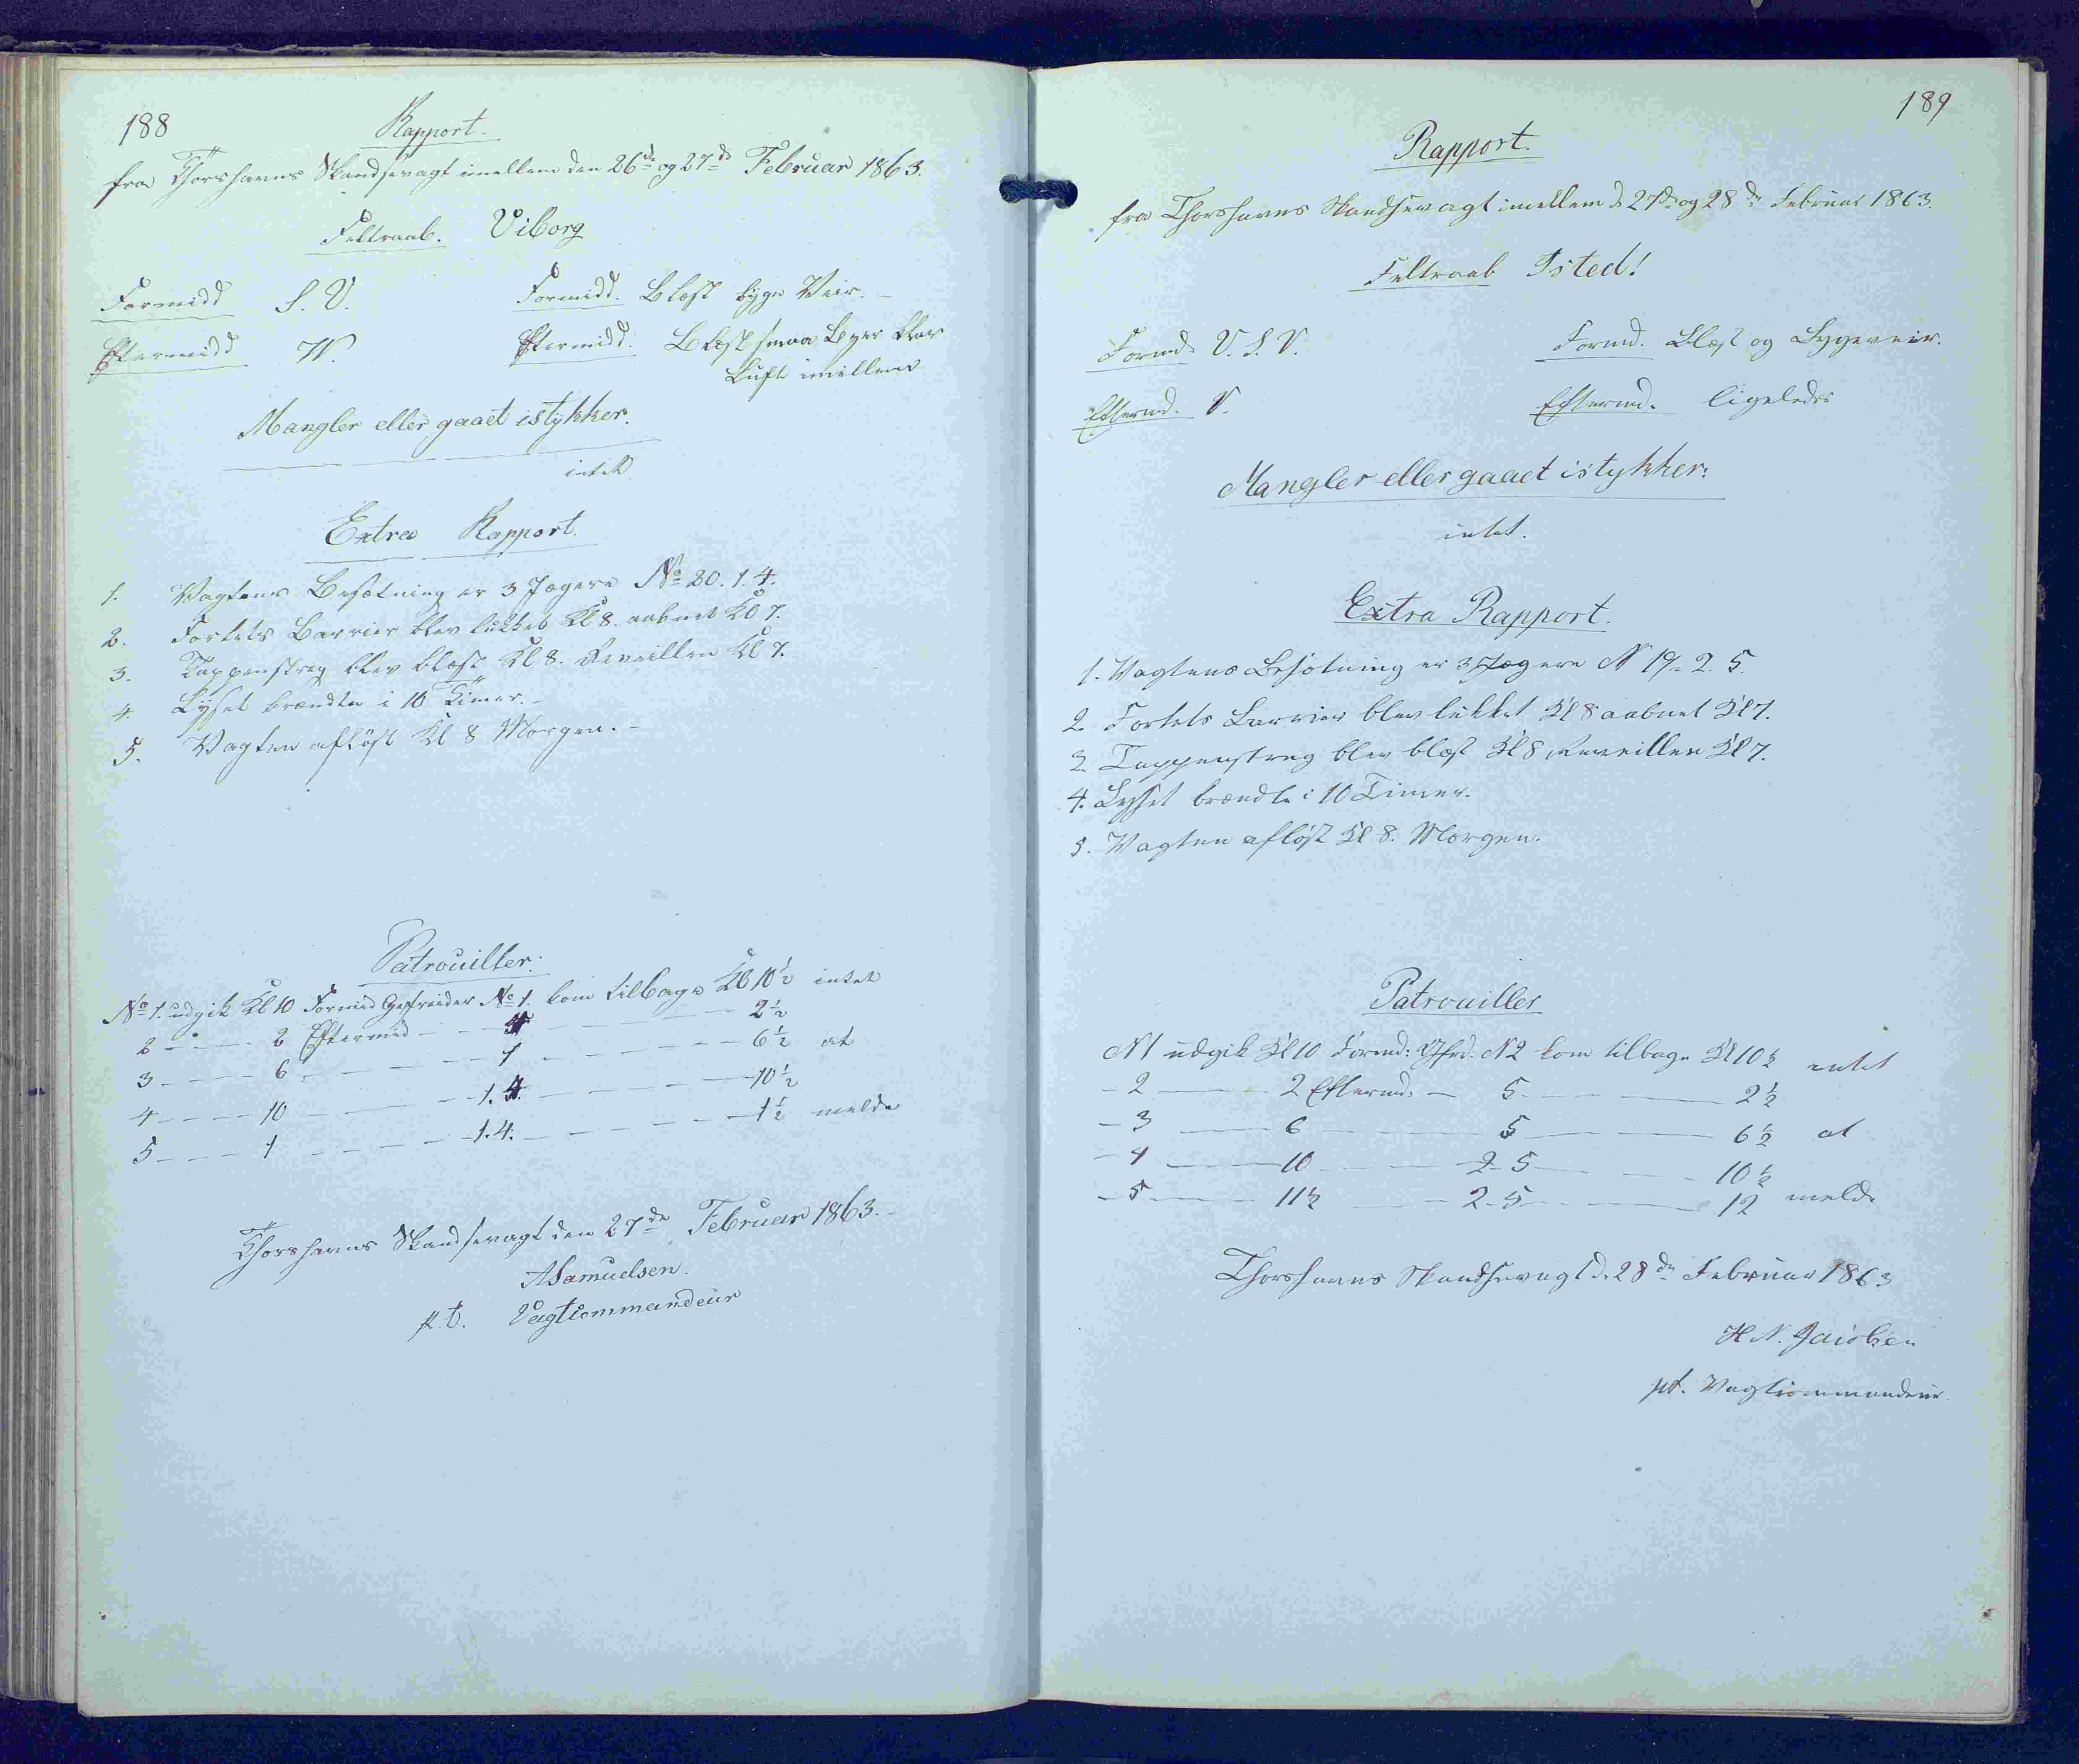 188
Rapport.
fra Thorshavns Skandsevagt imellem den 26de og 27de Februar 1863.
Feltraab. Viborg
Formidd S. V. Formidd. Blæst byge Veir. –
Eftermidd W. Eftermidd. Blæst smaa Byer klar
Luft imellem
Mangler eller gaaet istykker.
intet
Extra Rapport.
1. Vagtens Besætning er 3 Jægere No 20. 1. 4.
2. Fortets Barrier blev lukket Kl 8. aabnet Kl 7.
3. Tappenstreg blev blæst Kl 8. Reveillen Kl 7.
4. Lyset brændte i 10 Timer. –
5. Vagten afløst Kl 8 Morgen. –
Patrouiller.
No 1. udgik Kl 10 Formid Gefreider No 1. kom tilbage Kl 10½ intet
2 – – – 2 Eftermid – – 4 – – – 2½
3 – – – 6 – – – 1 – – – 6½ at
4 – – – 10 – – – 1. 4. – – – 10½
5 – – – 1 – – – 1. 4. – – – 1½ melde
Thorshavns Skandsevagt den 27de Februar 1863. –
ASamuelsen.
p.t. Vagtcommandeur
189
Rapport.
fra Thorshavns Skandsevagt imellem d. 27de og 28de Februar 1863.
Feltraab Isted!
Formd. V. S. V. Formd. Blæst og Bygeveir.
Eftermd. V. Eftermd. ligeledes
Mangler eller gaaet istykker:
intet.
Extra Rapport.
1. Vagtens Besætning er 3 Jægere N 19. 2. 5.
2. Fortets Barrier blev lukket Kl 8 aabnet Kl 7.
3. Tappenstreg blev blæst Kl 8 Reveillen Kl 7.
4. Lyset brændte i 10 Timer.
5. Vagten afløst Kl 8. Morgen.
Patrouiller
N 1 udgik Kl 10 Formd: Gfrd. N 2 kom tilbage Kl 10½ intet
– 2 – – 2 Eftermd. – 5 – – 2½
– 3 – – 6 – – 5 – – 6½ at
– 4 – – 10 – – 2–5 – – 10½
– 5 – – 11½ – – 2–5 – – 12 melde
Thorshavns Skandsevagt d. 28de Februar 1863
H N. Jacobsen
pt. Vagtcommandeur.